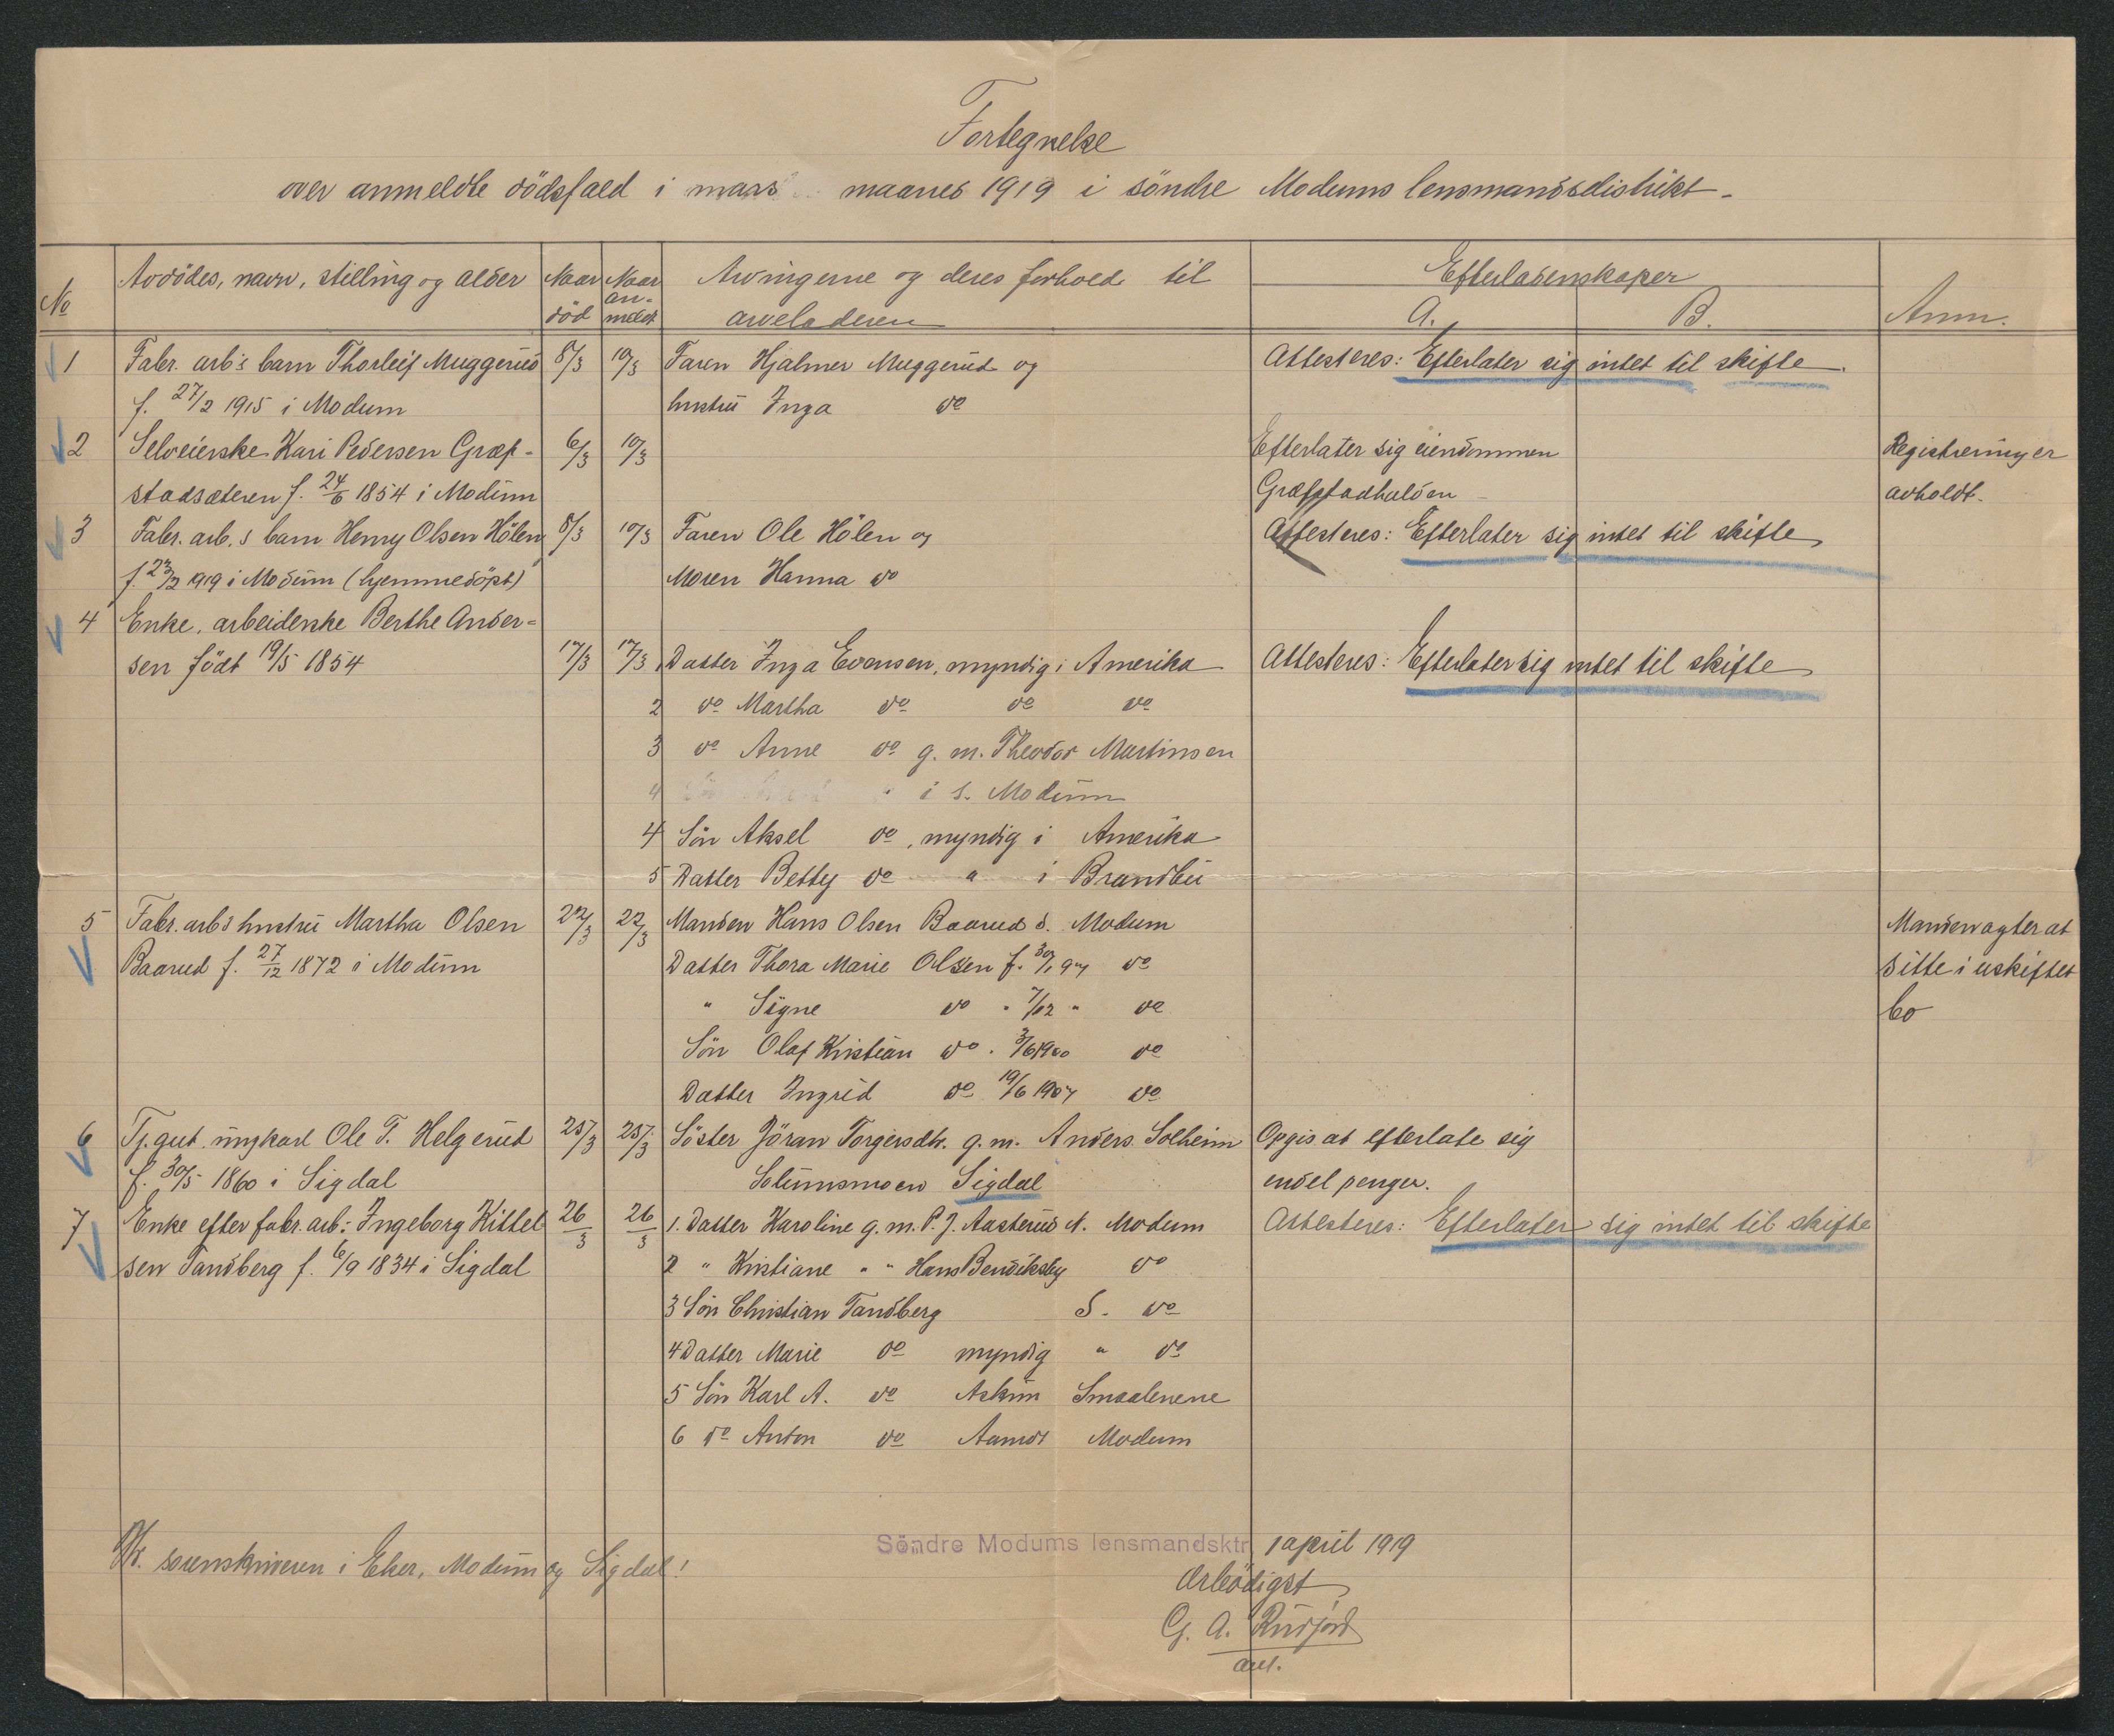 Fortegnelse
over anmeldte dödsfald i mars maaned 1919 i söndre Modums lensmandsdistrikt.
No Avdödes, navn, stilling og alder Naar död Naar an-meldt Arvingerne og deres forhold til arveladeren Efterladenskaper A. B. Anm.
1 Fabr. arb's barn Thorleif Muggerud 8/3 10/3 Faren Hjalmer Muggerud og Attesteres: Efterlater sig intet til skifte.
f. 27/2 1915 i Modum hustru Inga do
2 Selveierske Kari Pedersen Græf- 6/3 10/3 Efterlater sig eiendommen Registrering er
stadsæteren f. 24/6 1854 i Modum Græfstadhalden avholdt.
3 Fabr. arb.s barn Henry Olsen Hölen 8/3 10/3 Faren Ole Hölen og Attesteres: Efterlater sig intet til skifte
f. 23/2 1919 i Modum (hjemmedöpt) Moren Hanna do
4 Enke, arbeiderske Berthe Ander-
sen födt 19/5 1854 17/3 17/3 1 Datter Inga Evensen, myndig i Amerika Attesteres: Efterlater sig intet til skifte
2 do Martha do do do
3 do Anne do g. m. Theodor Martinsen
4 i S. Modum
4 Sön Aksel do, myndig i Amerika
5 Datter Betty do " i Brandbu
5 Fabr. arb's hustru Martha Olsen 22/3 22/3 Manden Hans Olsen Baarud S. Modum Manden agter at
Baarud f. 27/12 1872 i Modum Datter Thora Marie Olsen f. 30/1 97 do sitte i uskiftet
" Signe do " 7/12 " do bo
Sön Olaf Kristian do " 3/6 1900 do
Datter Ingrid do 19/6 1907 do
6 Tj. gut. ungkarl Ole T. Helgerud 25/3 25/3 Söster Jöran Torgersdtr. g. m. Anders Solheim Opgis at efterlate sig
f. 30/5 1860 i Sigdal Solumsmoen Sigdal endel penger.
7 Enke efter fabr. arb: Ingeborg Kittel- 26/3 26/3 1. Datter Karoline g. m. P. J. Aasterud N. Modum Attesteres: Efterlater sig intet til skifte
sen Tandberg f. 6/9 1834 i Sigdal 2 " Kristiane " " Hans Bendiksby do
3 Sön Christian Tandberg S. do
4 Datter Marie do myndig " do
5 Sön Karl A. do Askim Smaalenene
6 do Anton do Aamot Modum
Söndre Modums lensmandsktr. 1 april 1919
Hr. sorenskriveren i Eker, Modum og Sigdal!
Ærbödigst
G. A.